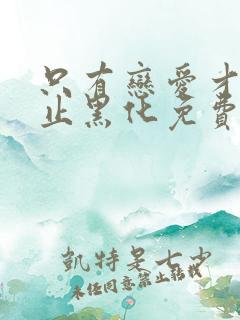 只有戀愛才
止黑化免費
凱特是七少
未經同意禁止轉載